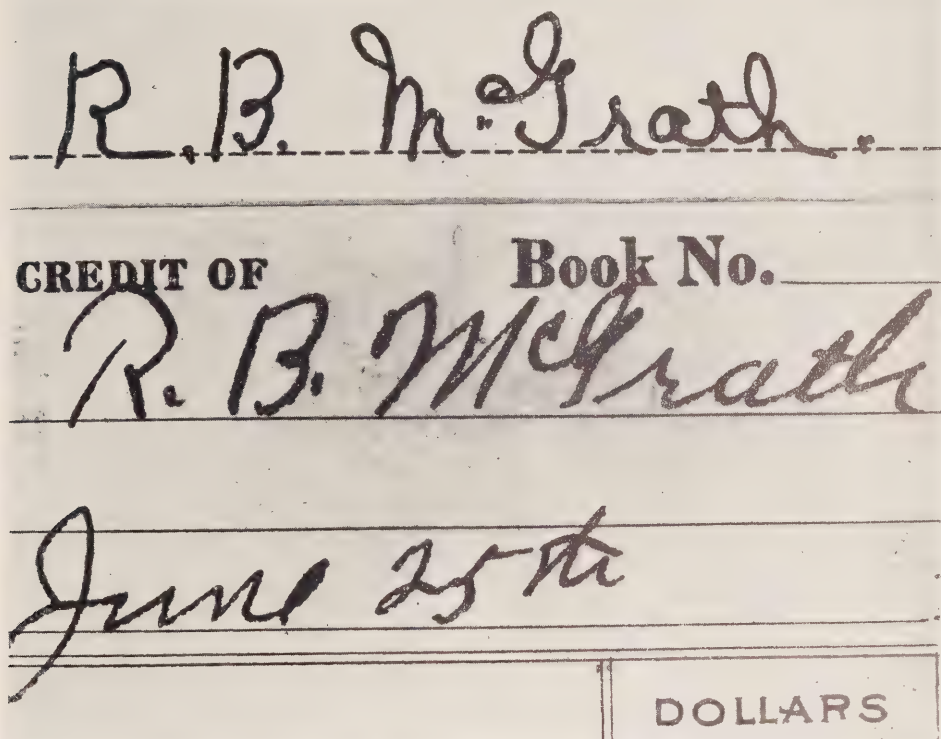 R. B. McGrath.
CREDIT OF Book No.
R. B. McGrath
June 25th
DOLLARS